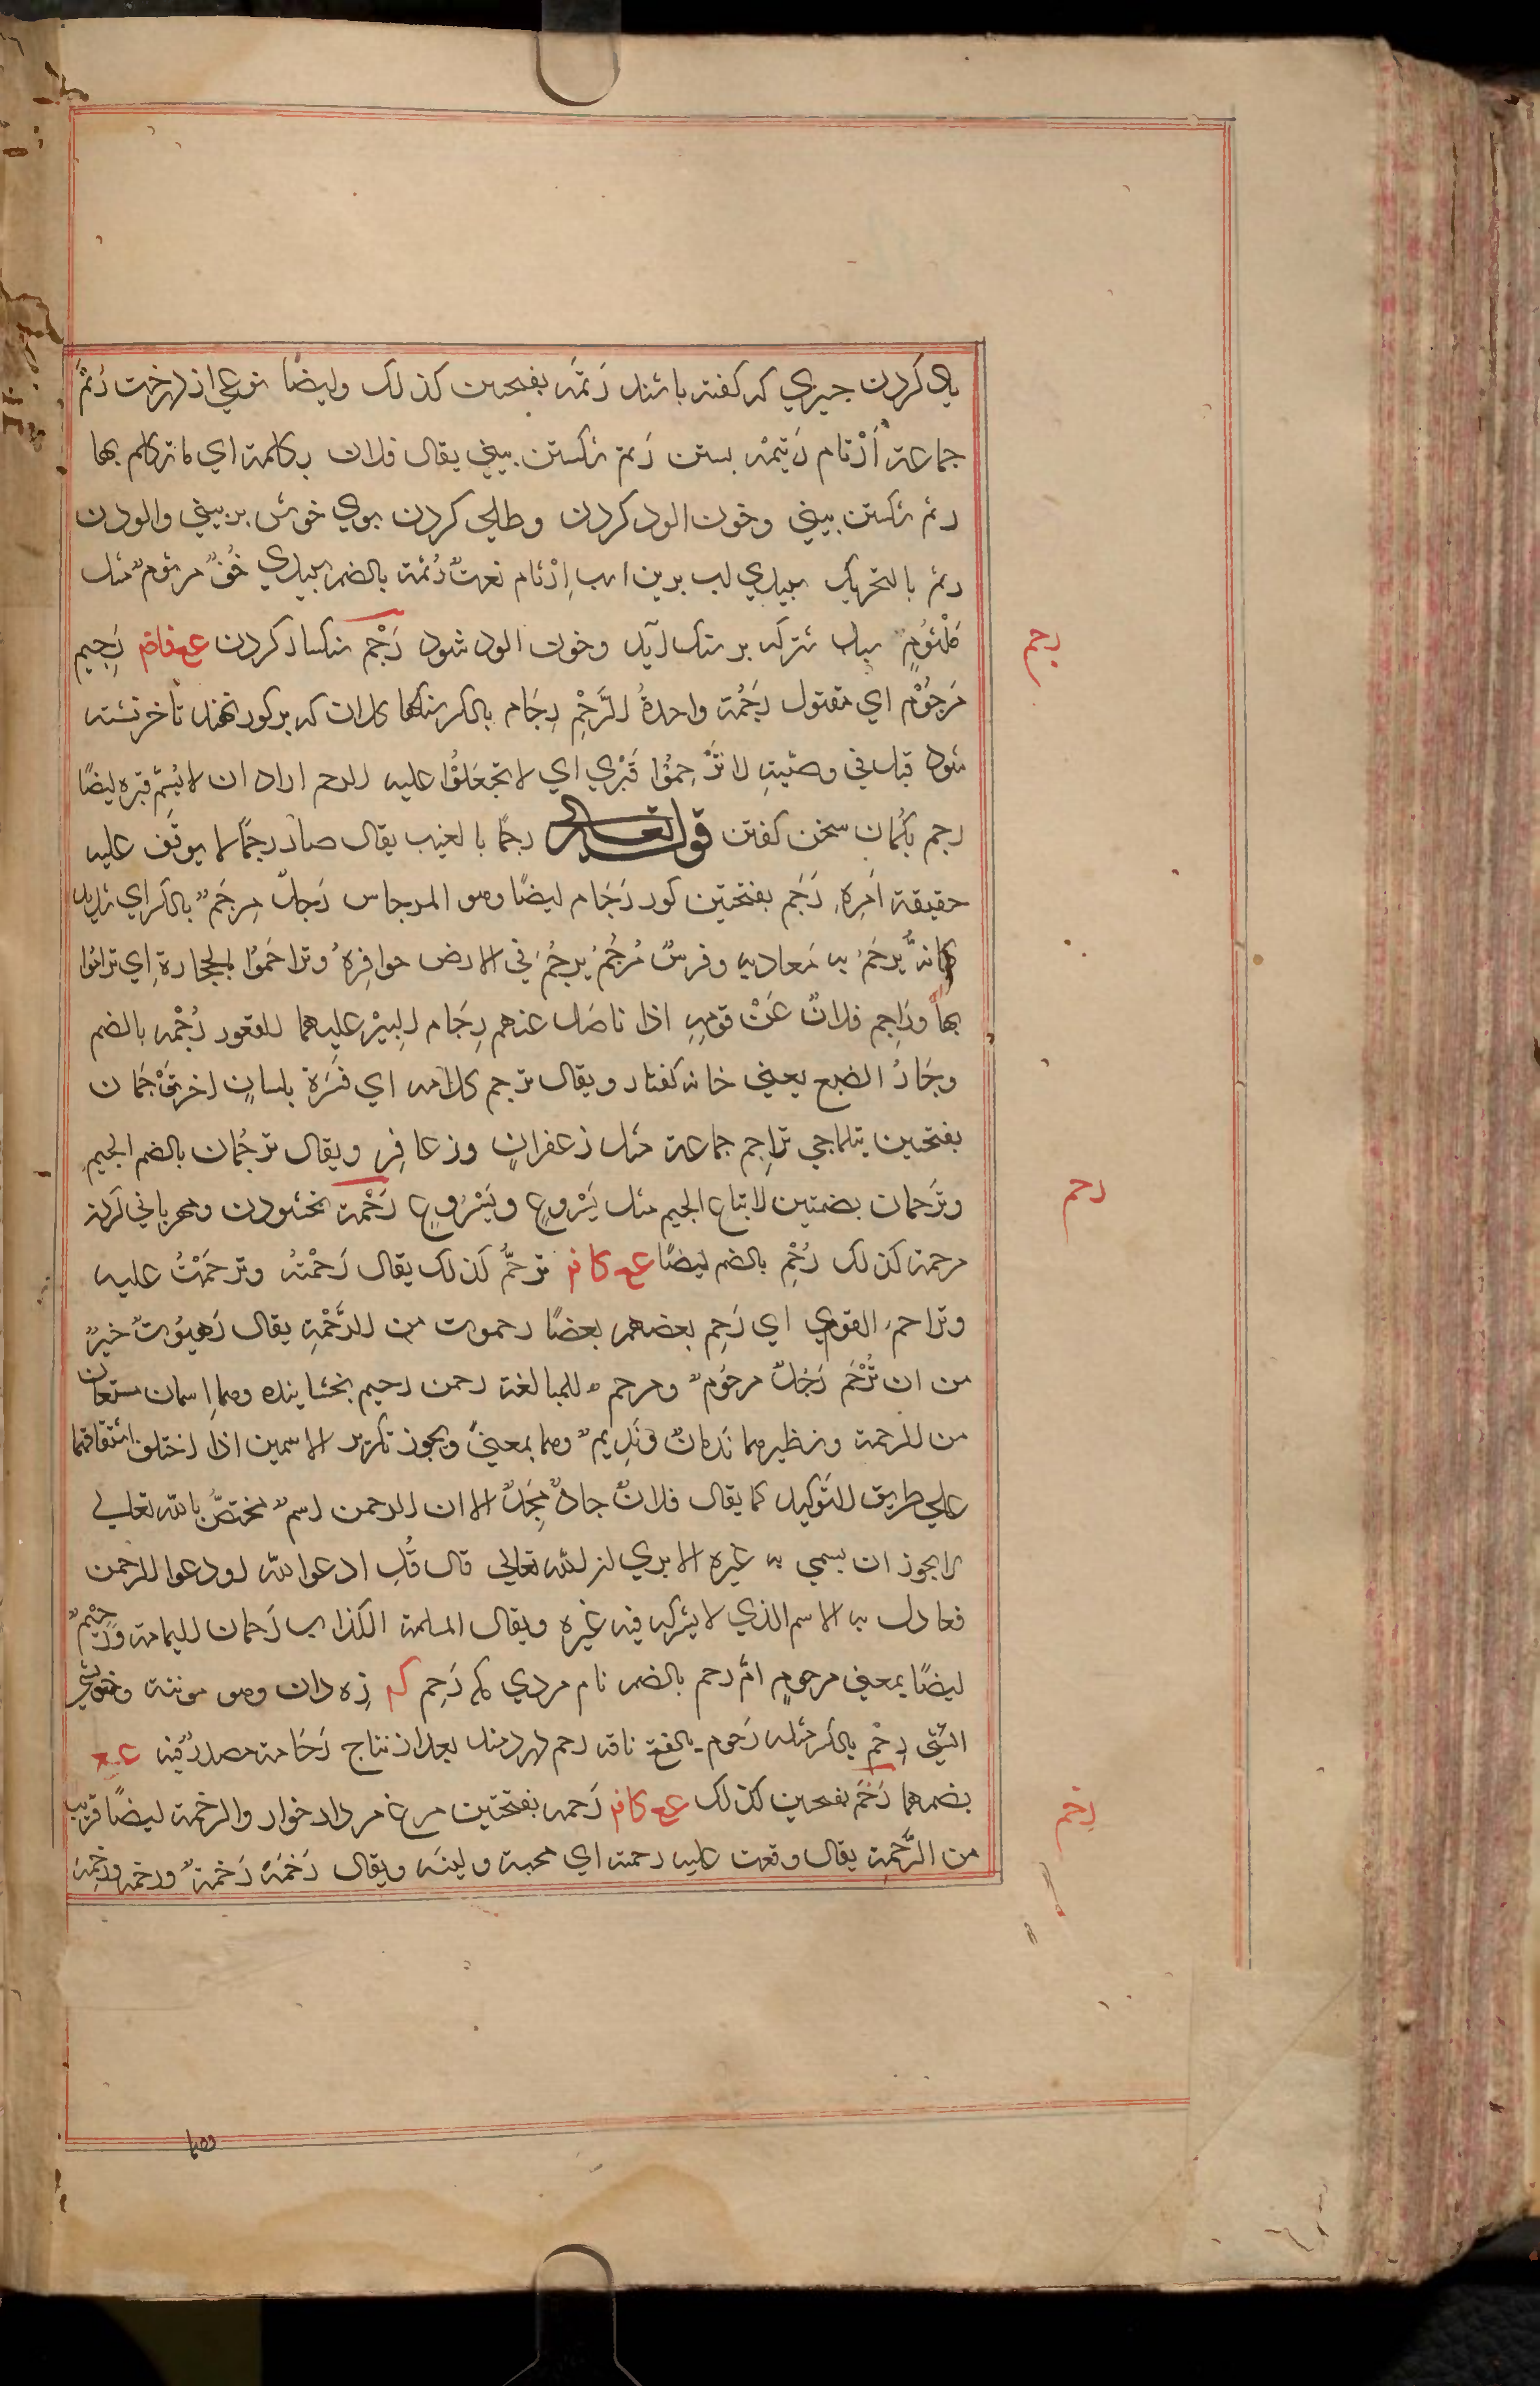 ياد كردن چيزي كه كفته باشند رَتَمَه بفتحتين كذلك وايضًا نوعي از درخت رَتَمٌ
جماعة اَرْتام رَتيمْه بستن رَتم شكستن بيني يقال فلان بكلمة اي ما تكلم بها
رثم شكستن بيني وخون الود كردن وطلي كردن بوي خوش بر بيني والودن
رثم بالتحريك سپيدي لب برين اسب اِرْثام نعتٌ رُثمة بالضم سپيدي خُفٌّ مرثومٌ مثل
مَلْثوُمٍ سنك بر آيد وخون الود شود رَجْم سنكسار كردن ع ف رَجيم
مَرجوُم اي مقتول رَجْمَة واحدةُ الرَّجْمِ رِجَام بالكسر سنكها كلان كه بر كور نهند تا خرپشته
شود قيل في وصيّتِهِ لا تَرْجموُا قَبْري اي لا تجْعَلُوْا عليه الرجم اراد ان لا يُسَنّم قبره ايضًا
رجم بكمان سخن كفتن قوله تعالى رجمًا بالغيب يقال صار رجمًا لا يوقَف عليه
حقيقة اَمرِهِ رَجَم بفتحتين كور رَجَام ايضًا وهو المرجاس رَجلٌ مِرجَمٌ بالكسر اي شديد
كانهُّ يُرجَمُ به مُعاديه وفرسٌ مُرجَمٌ يرجُمُ في الارض حوافِرِهُ وتراجَموُا بالحجارةِ اي تراموُا
بها ورَاجم فلانٌ عَنْ قومِهِ اذا ناضل عنهم رِجَام البِيْر عليهما للقعود رُجْمه بالضم
وِجَارُ الضبع يعني خانه كفتار ويقال ترجم كلامه اي فسَّرَهُ بلسانٍ اخر تَرْجَمَان
بفتحتين تراجم جماعة مثل زعفرانٍ وزعافِر ويقال ترجُمان بالضم الجيم
وتُرجمان بضمتين لاتباع الجيم مثل يَسْروعٍ ويُسْرُوعٍ رَحْمة بخشودن ومهرباني كردن
مرحمة كذلك رُحْمٌ بالضم ايضًا ع ترحُّم كذلك يقال رَحْمتُهُ وترحَمّتُ عليه
وتراحمَ القوم اي رَحِم بعضهم بعضًا رحموت من الرَّحْمةِ يقال رَهبوُتٌ خيرٌ
من ان تُرْحَم رَجُلٌ مرحوُمٌ ومرحّمٌ للمبالغة رحمن رحيم بخشاينده وهما اسمان مشتقان
من الرحمة ونظيرهما نَدمانٌ ونَديمٌ وهما بمعنيً ويجوز تكرير الاسمين اذا اختلف اشتقاقهما
علي طريق التَوكيد كما يقال فلانٌ جادٌّ مجدٌ الا ان الرحمن اسمٌ مختصٌّ بالله تعالي
لا يجوز ان يسمي به غيره الا يري ان الله تعالي قال قُلِ ادعوا الله او ادعوا الرحمن
فعادل به الاسم الذي لا يشركه فيه غيره ويقال المسلمة الكذاب رَحمان اليمامة ورَحيمٌ
ايضًا بمعني مرحومٍ امّ رحم بالضم نام مردي رَحِم زه دان وهو مونثة وخويشي
رِحْم بالكسر مثله رَحوم بالفتح ناقه رحم دردمند بعد از نتاج رَحَامة مصدرٌ فيه ع
بضمهما رَخَم بفتحتين كذلك ع رَخمه بفتحتين مرغ مردار خوار والرخمة ايضًا قريب
من الرَّحمَةِ يقال وقعت عليه رخمته اي محبته ولينه ويقال رَخمَهُ رَخمةً
رجم
رحم
رخم
وهما